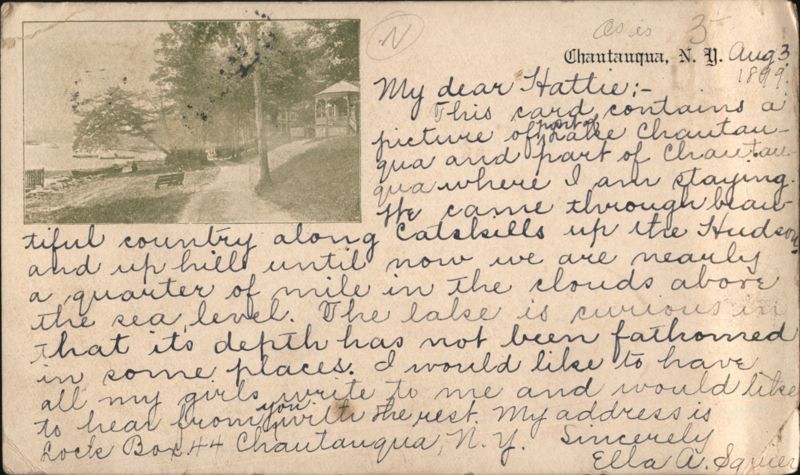 N
As is 3
Chautauqua, N. Y. Aug 3
1899.
My dear Hattie:-
This card contains a
picture of part of Lake Chautau-
qua and part of Chautau-
qua where I am staying.
We came through beau-
tiful country along Catskills up the Hudson
and up hill until now we are nearly
a quarter of mile in the clouds above
the sea level. The lake is curious in
that its depth has not been fathomed
in some places. I would like to have
all my girls write to me and would like
to hear from you with the rest. My address is
Lock Box 44 Chautauqua, N. Y. Sincerely
Ella A. Squier